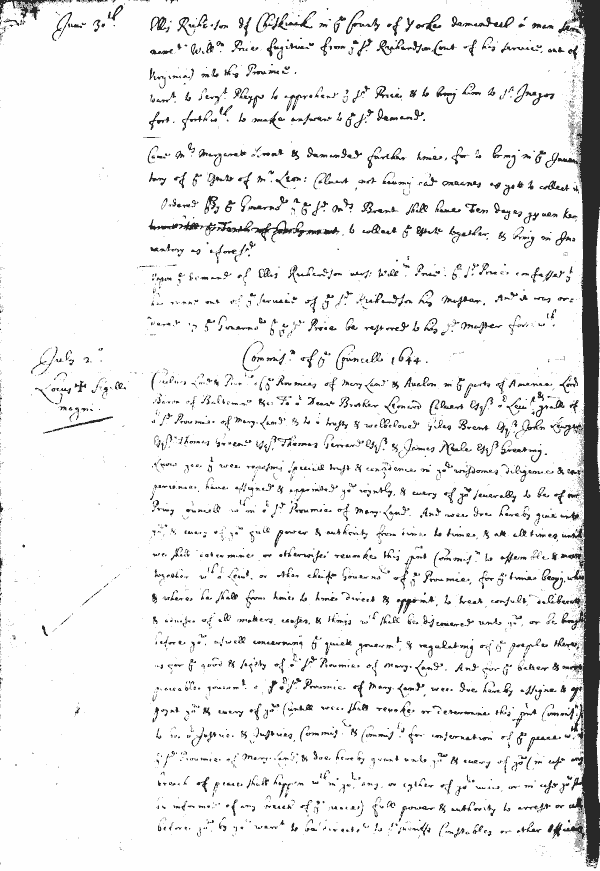 June 30th
Ellis Richardson of Chiskiack in ye County of Yorke demanded a man
namet Willm Price fugitive from ye sd Richardson out of his service, out of
Virginia) into this Province.
to apprehend ye sd Price, & to bring him to St Inagos
fort. forthwth to make answere to ye sd demand.
Came Mrs Margarett Brent & demanded further time, for to bring in ye Inven
tory of ye Estate of Mr Leon: Calvert, not having meanes as yett to collect it
Ordered By ye Governor yt ye sd Mrs Brent shall have Ten dayes given her
to collect ye Estate together, & bring in Inv
entory as aforesd
Upon ye demand of Ellis Richardson vers. Willm Price ye sd Price confessed yt
hee runne out of ye service of ye sd Richardson his Master, And it was or:
dered by ye Governor yt ye sd Price be restored to his sd Master forthwth
July 2o
Commisn of ye Councelle 1644.
Locus Sigilli
magni.
Cecilius Lord of ye Provinces of Mary Land & Avalon in ye parts of America, Lord
Baron of Baltimore &c: To or Deare Brother Leonard Calvert Esqr or Leiut. Gralle of
or sd Province of Mary-Land & to or trusty & welbeloved Giles Brent Esqr John Lewger
Esqr Thomas Greene Esqr Thomas Gerrard Esqr & James Neale Esqr Greeting.
Know yee yt wee reposing speciall trust & confidence in yor wisdomes diligence & ex
perience, have assigned & appointed you ioyntly, & every of you severally to be of our
Privy Councell wthin or sd Province of Mary-Land. And wee doe hereby give unto
you, & every of you full power & authority from time to time, & att all times untill
wee shall determine or otherwise revoke this pnt Commisn to assemble & meete
together wth or Leiut. or other cheife Governor of ye Province, for ye time being, when
& where he shall from time to time direct & appoint, to treat consult, deliberate
& advise of all matters, causes, & things wch shall be discovered unto you, or be brought
before you, aswell concerning ye quiet governmt, & regulating of ye people there,
as for ye good & safety of or sd Province of Mary-Land. And for ye better & more
peaceable governmt of or sd Province of Mary-Land, wee doe hereby assigne & ap
point you & every of you (untill wee shall revoke or determine this pnt Commisn)
to be or Justice & Justices, Commisr & Commisrs for conservation of ye peace wth
in or sd Province of Mary-Land, & doe hereby grant unto you & every of you (in case any
breach of peace shall happen wthin you any, or eyther of you view, or in case you
be informed of any breach of ye peace) full power & authority to arrest or call
before you, by yor warrt to be directed to Sheriffs Constables or other Officers